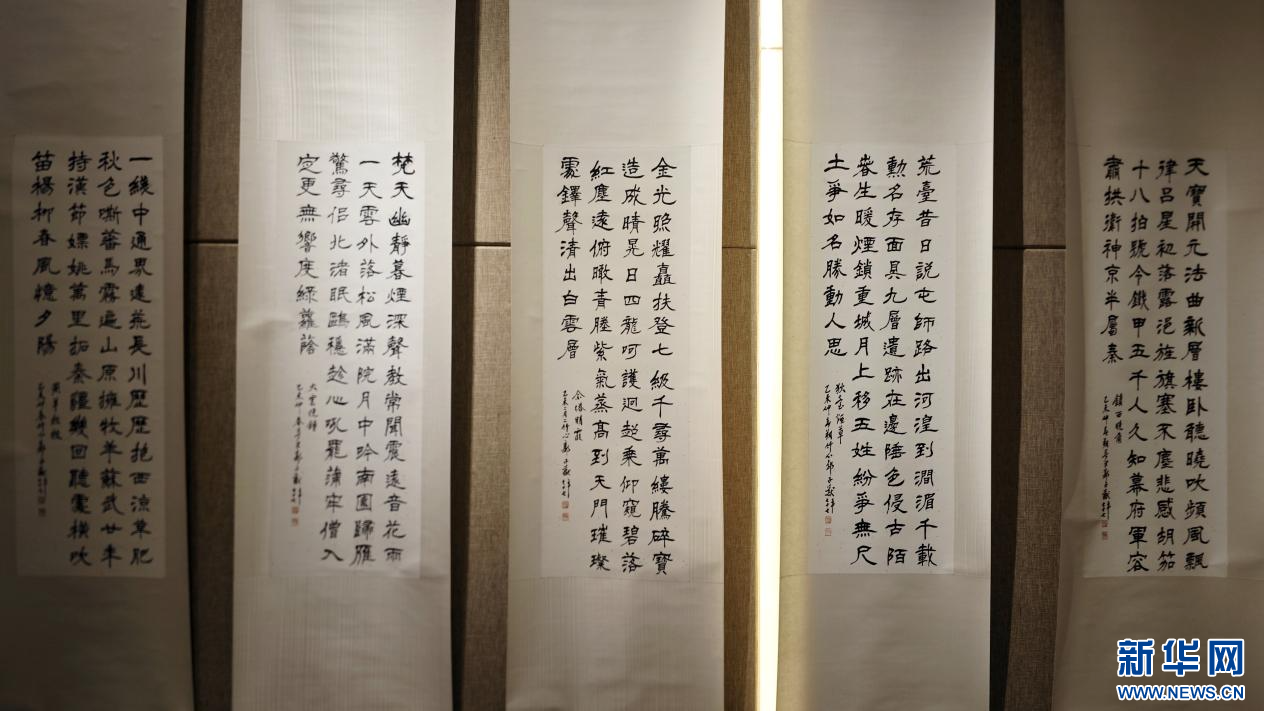 天寶開元法曲新層樓卧聽曉吹頻風飄
律呂星初落露浥旌旗塞不塵悲感胡笳
十八拍號令鐵甲五千人久知幕府軍容
肅拱衛神京半屬秦
鎮西曉角
荒臺昔日說屯師路出河湟到澗湄千載
勳名存面具九層遺跡在邊陲色侵古陌
春生暖煙鎖重城月上移五姓紛爭無尺
土爭如名勝動人思
狄臺煙草
金光照耀矗扶登七級千尋萬縷騰碎寶
造成晴晃日四龍呵護迥超乘仰窺碧落
紅塵遠俯瞰青塍紫氣蒸高到天門璀璨
處鐸聲清出白雲層
金塔晴霞
梵天幽靜暮煙深聲教常聞震遠音花雨
一天雲外落松風滿院月中吟南園歸雁
驚尋侶北渚眠鷗穩趁心吼罷蒲牢僧入
定更無響度綠蘿蔭
大雲曉鐘
一綫中通界遠荒長川歷歷抱西涼草肥
秋色嘶蕃馬霧遍山原擁牧羊蘇武廿年
持漢節嫖姚萬里拓秦疆幾回聽處橫吹
笛楊柳春風憶夕陽
黃羊秋牧
新华网
WWW.NEWS.CN